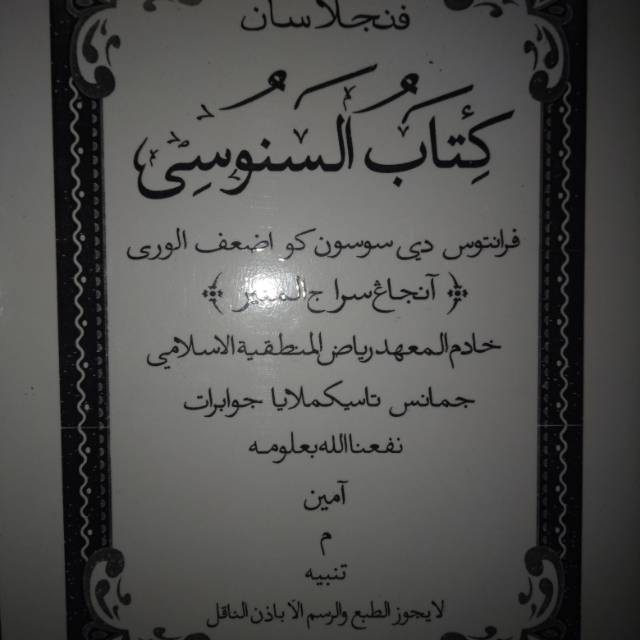 فنجلاسان
كِتَابُ السَنُوسِى
فرانتوس دي سوسون كو اضعف الورى
﴿ آنجاڠ سراج المنير ﴾
خادم المعهد رياض المنطقية الاسلامي
جمانس تاسيكملايا جوابرات
نفعنا الله بعلومه
آمين
م
تنبيه
لا يجوز الطبع والرسم الا باذن الناقل